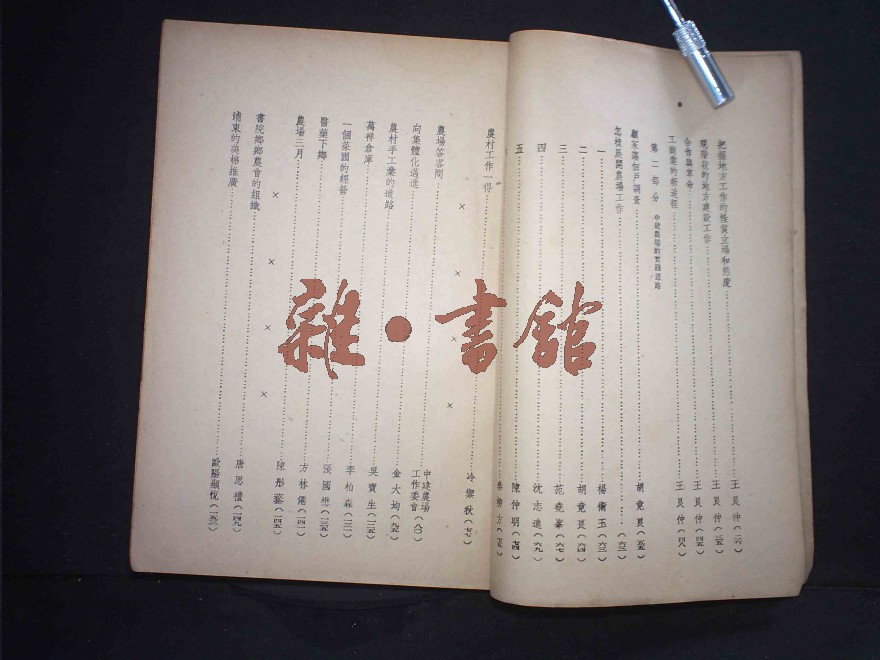 把握地方工作的性質立場和態度……王艮仲(二六)
現階段的地方建設工作……王艮仲(三五)
合作與革命……王艮仲(四五)
工商業的新途徑……王艮仲(四八)
第二部分 中建農場的實踐道路
顧家路佃戶調查……胡竟良(五五)
怎樣展開農場工作……(六三)
一……楊衛玉(六三)
二……胡竟良(六四)
三……范堯峯(六七)
四……沈志遠(六九)
五……陳仲明(七四)
農村工作一得……冷禦秋(七七)
× × × ×
農場答客問……中建農場工作委會(八〇)
向集體化邁進
農村手工業的道路……金大均(九五)
萬祥倉庫……吳寶生(一二五)
一個菜園的經營……李柏森(一三一)
醫藥下鄉……張國想(一三五)
農場三月……方林儒(一四一)
× × × ×
書院鄉鄉農會的組織……唐思禮(一四九)
浦東的美棉推廣……歐陽顯悅(一五三)
雜·書館